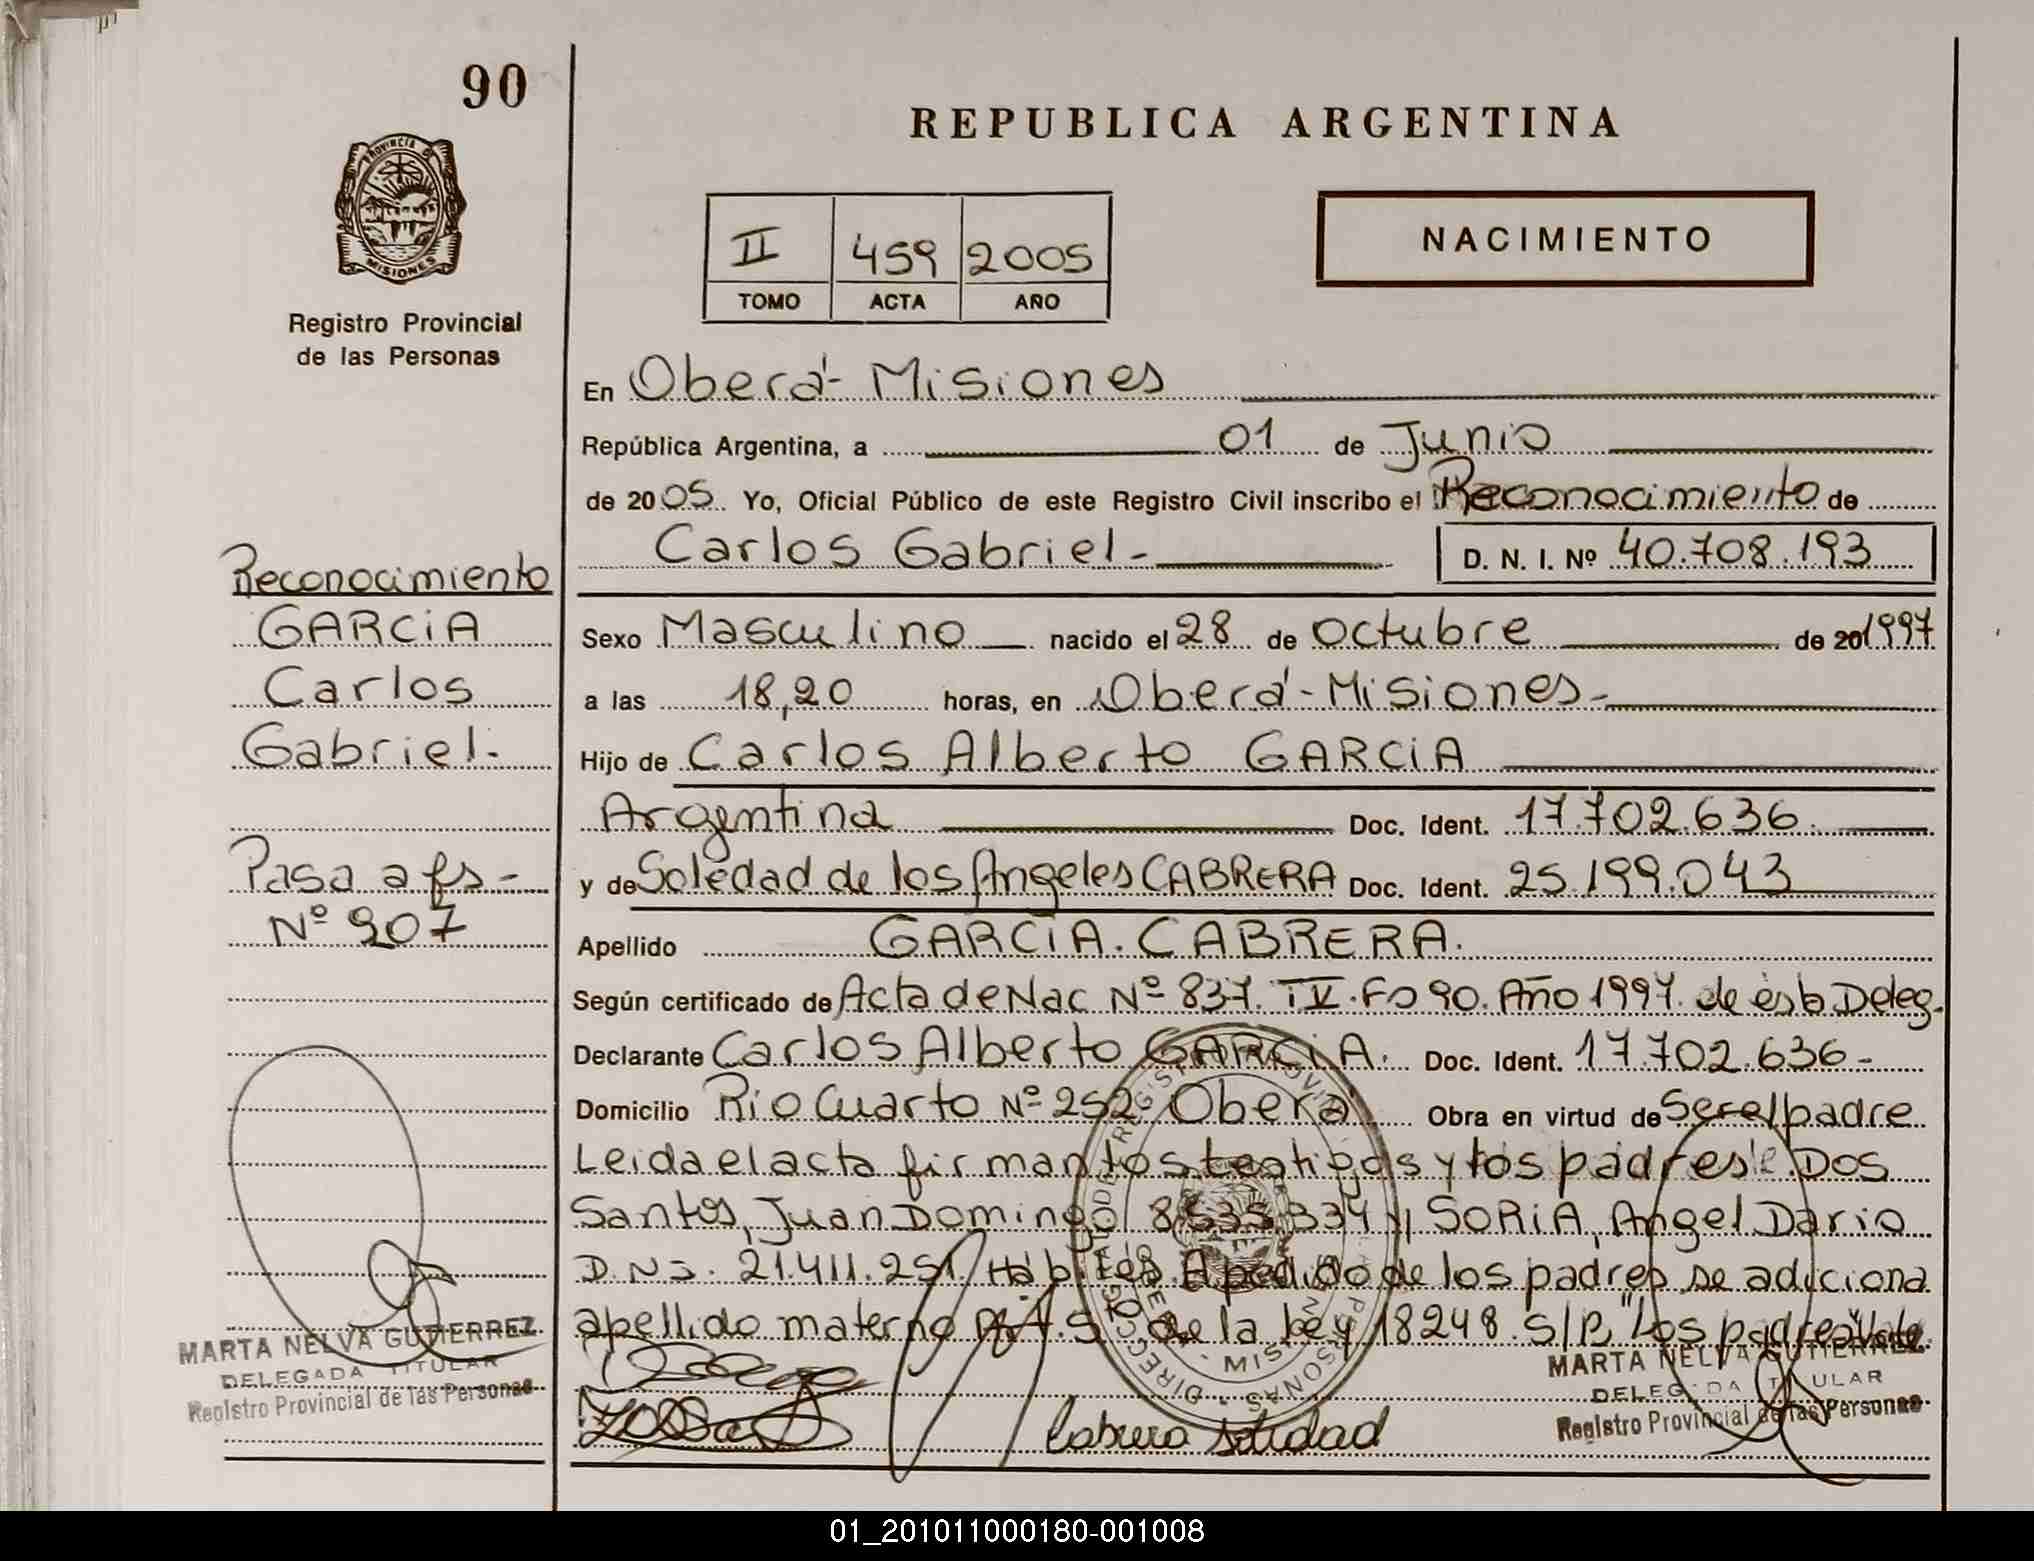 90
REPUBLICA ARGENTINA
PROVINCIA D
MISIONES
NACIMIENTO
II 459 2005
TOMO ACTA AÑO
Registro Provincial
de las Personas
En Oberá - Misiones
República Argentina, a 01 de Junio
de 2005. Yo, Oficial Público de este Registro Civil inscribo el Reconocimiento de
Carlos Gabriel - D. N. I. Nº 40.708.193
Reconocimiento
GARCIA
Carlos
Gabriel.
Pasa a fs -
Nº 907
Sexo Masculino nacido el 28 de octubre de 20 1997
a las 18,20 horas, en Oberá - Misiones -
Hijo de Carlos Alberto GARCIA
Argentina Doc. Ident. 17.702.636.
y de Soledad de los Angeles CABRERA Doc. Ident. 25.199.043
Apellido GARCIA. CABRERA.
Según certificado de Acta de Nac Nº 837. IV. Fo 90. Año 1997. de esta Deleg.
Declarante Carlos Alberto GARCIA. Doc. Ident. 17.702.636 -
Domicilio Rio Cuarto Nº 252 - Oberá Obra en virtud de Ser el padre
Leida el acta firman los testigos y los padres Dos
Santos, Juan Domingo 8.535.334 y SORIA, Angel Dario
D.N.I. 21.411.251 Hábiles. A pedido de los padres se adiciona
apellido materno Art. 5º de la Ley 18248. S/R "Los padres" Vale
Cabrera Soledad
MARTA NELVA GUTIERREZ
DELEGADA TITULAR
Registro Provincial de las Personas
MARTA NELVA GUTIERREZ
DELEGADA TITULAR
Registro Provincial de las Personas
01_201011000180-001008